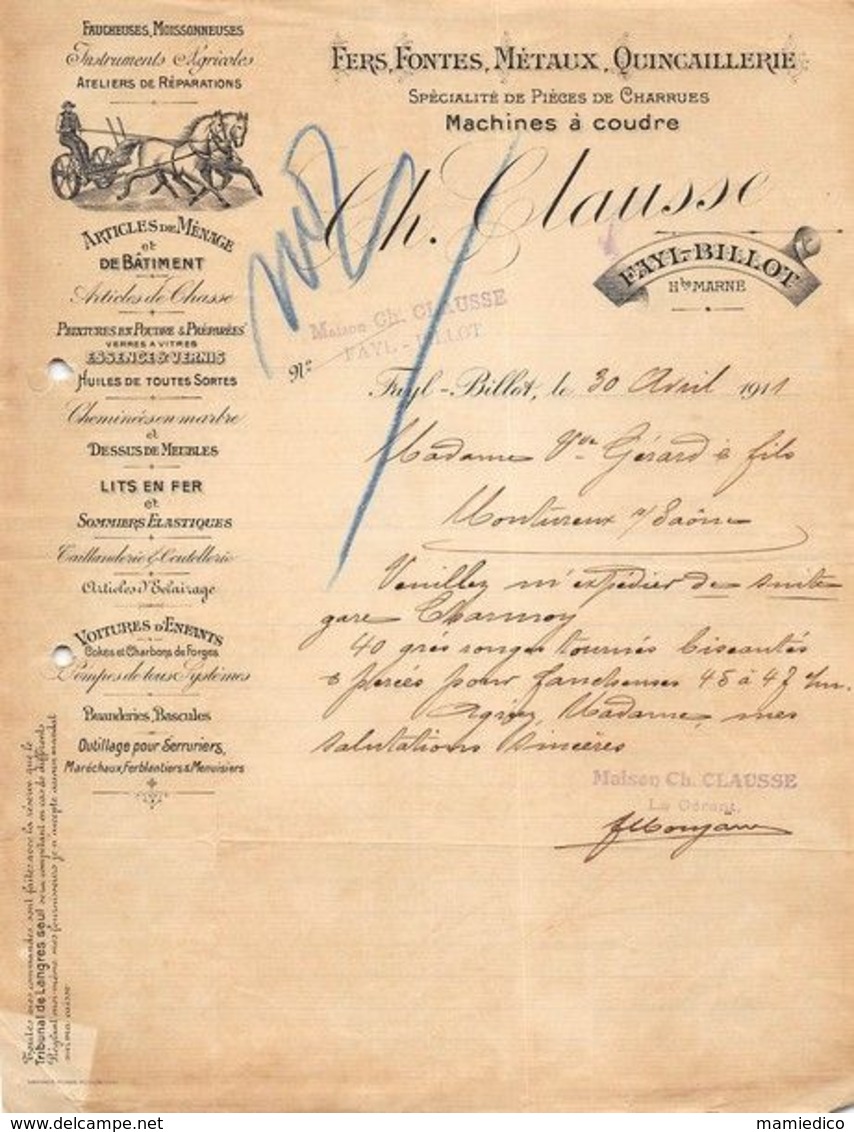 FAUCHEUSES, MOISSONNEUSES
Instruments Agricoles
ATELIERS DE RÉPARATIONS
ARTICLES DE MÉNAGE
et
DE BÂTIMENT
Articles de Chasse
PEINTURES EN POUDRE & PRÉPARÉES
VERRES A VITRES
ESSENCE & VERNIS
HUILES DE TOUTES SORTES
Cheminées en marbre
et
DESSUS DE MEUBLES
LITS EN FER
et
SOMMIERS ELASTIQUES
Taillanderie & Coutellerie
Articles d'Eclairage
VOITURES D'ENFANTS
Cokes et Charbons de Forges
Pompes de tous Systèmes
Buanderies, Bascules
Outillage pour Serruriers,
Maréchaux, Ferblantiers & Menuisiers
Toutes mes commandes sont faites avec la réserve que le
Tribunal de Langres seul sera compétent en cas de différents
Réglant moi-même mes fournisseurs je n'accepte aucun mandat
sur ma caisse
FERS, FONTES, MÉTAUX, QUINCAILLERIE
SPÉCIALITÉ DE PIÈCES DE CHARRUES
Machines à coudre
Ch. Clausse
FAYL-BILLOT
Hte MARNE
Maison Ch. CLAUSSE
FAYL-BILLOT
No
Fayl-Billot, le 30 Avril 1911
Madame Vve Gérard & fils
Montureux s/Saône
Veuillez m'expédier de suite
gare Charmoy
40 grés rouges tournés biseautés
& percés pour faucheuses 45 à 47 c/m.
Agréez, Madame, mes
salutations sincères
Maison Ch. CLAUSSE
Le Gérant,
mamiedico